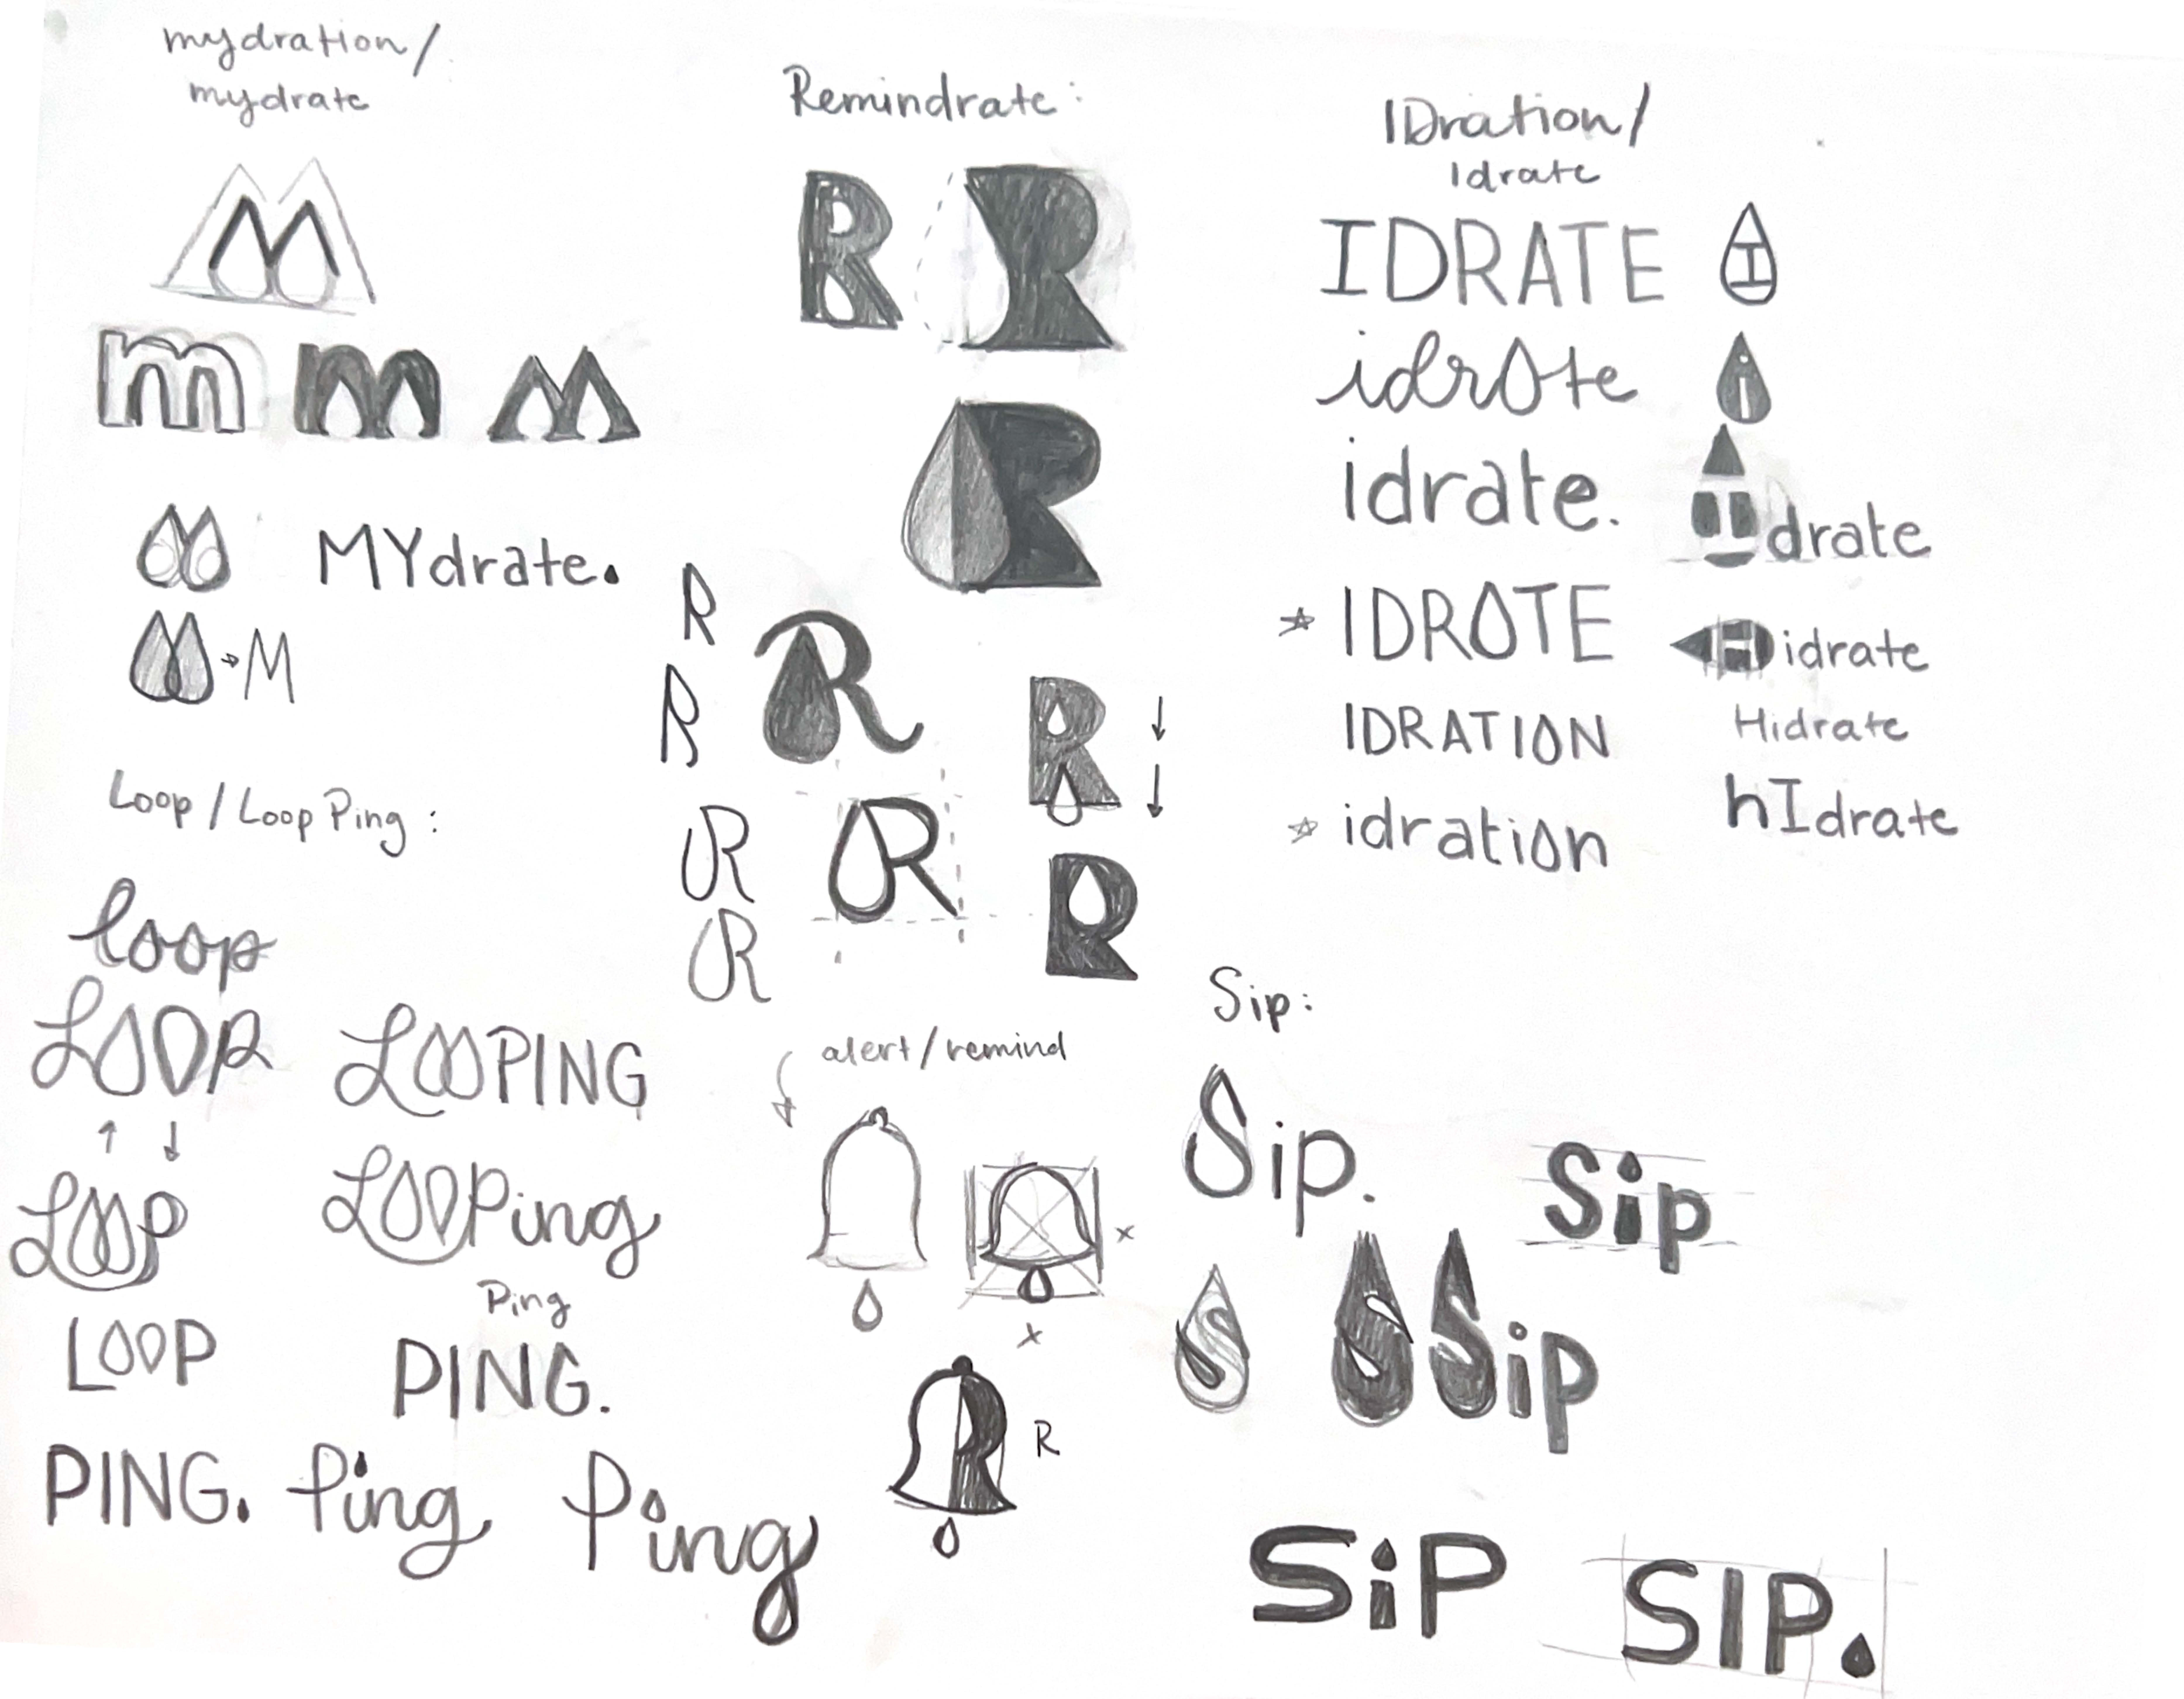 mydration/
mydrate
M
m m M
MYdrate.
M
Loop / Loop Ping :
loop
LOOP
LOOPING
LOOP
LOOPing
LOOP
Ping
PING.
PING. Ping Ping
Remindrate:
R R
R
R
R
R
R
R
R
R
R
R
alert/remind
x
x
R
R
IDration/
Idrate
IDRATE I
idrate i
idrate.
Idrate
IDRATE
H idrate
IDRATION
Hidrate
idration
hIdrate
Sip:
Sip.
Sip
S
S Sip
SiP
SIP.